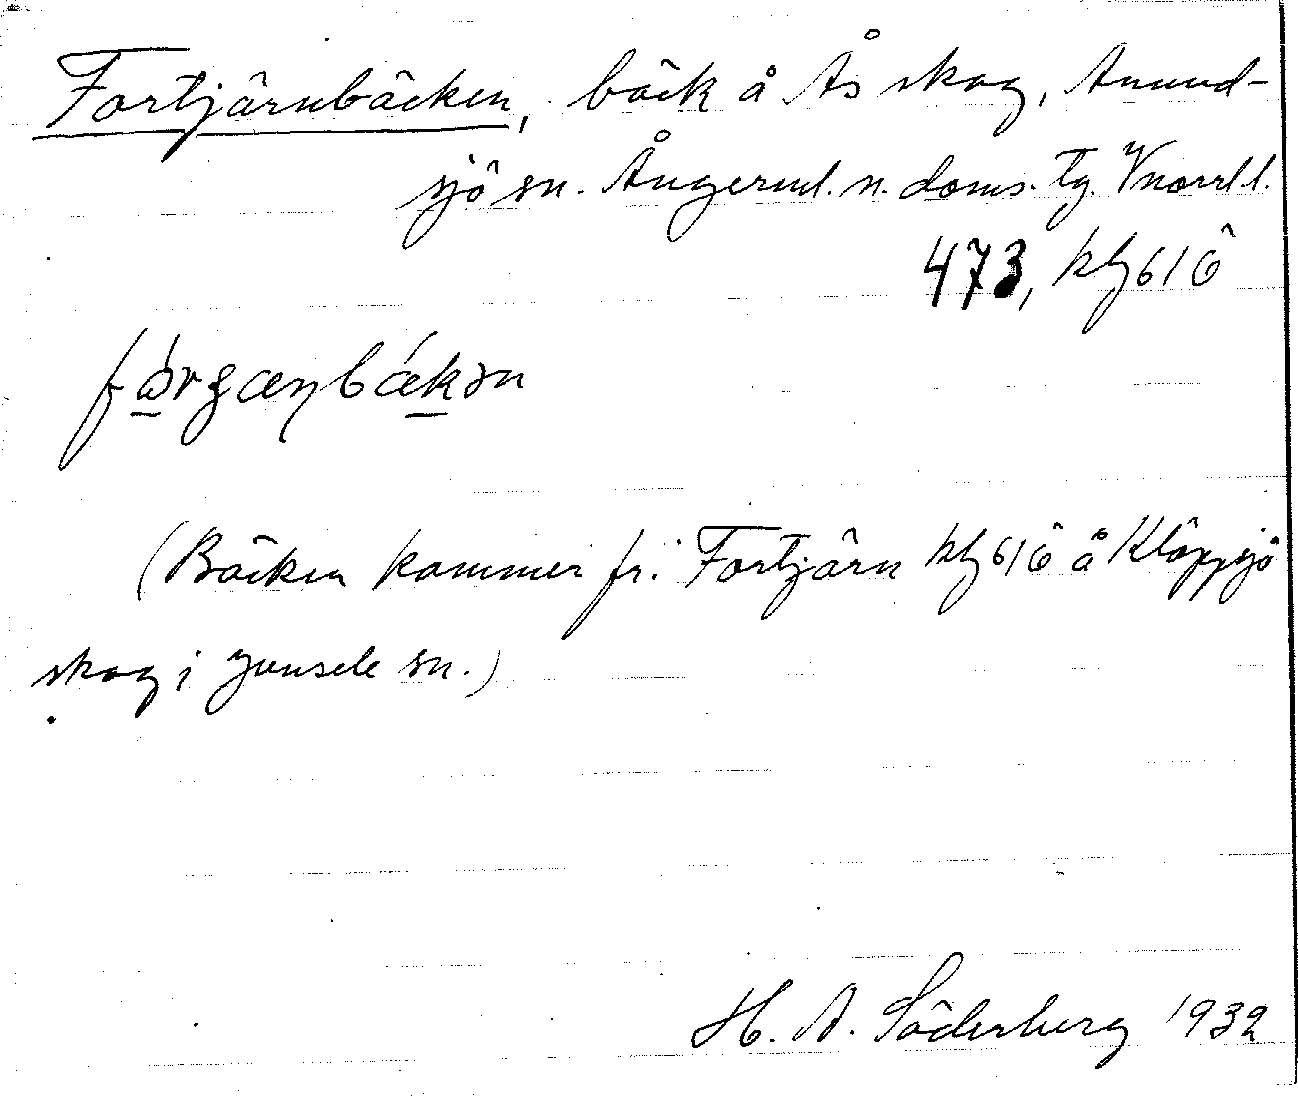 Fortjärnbäcken, bäck å Ås skog, Anund-
sjö sn. Ångerml. n. doms. tg. Vnorrl. l.
473, kbl 61 ö
(Bäcken kommer fr. Fortjärn kbl 61 ö å Klöppsjö
skog i Junsele sn.)
H. A. Söderberg 1932